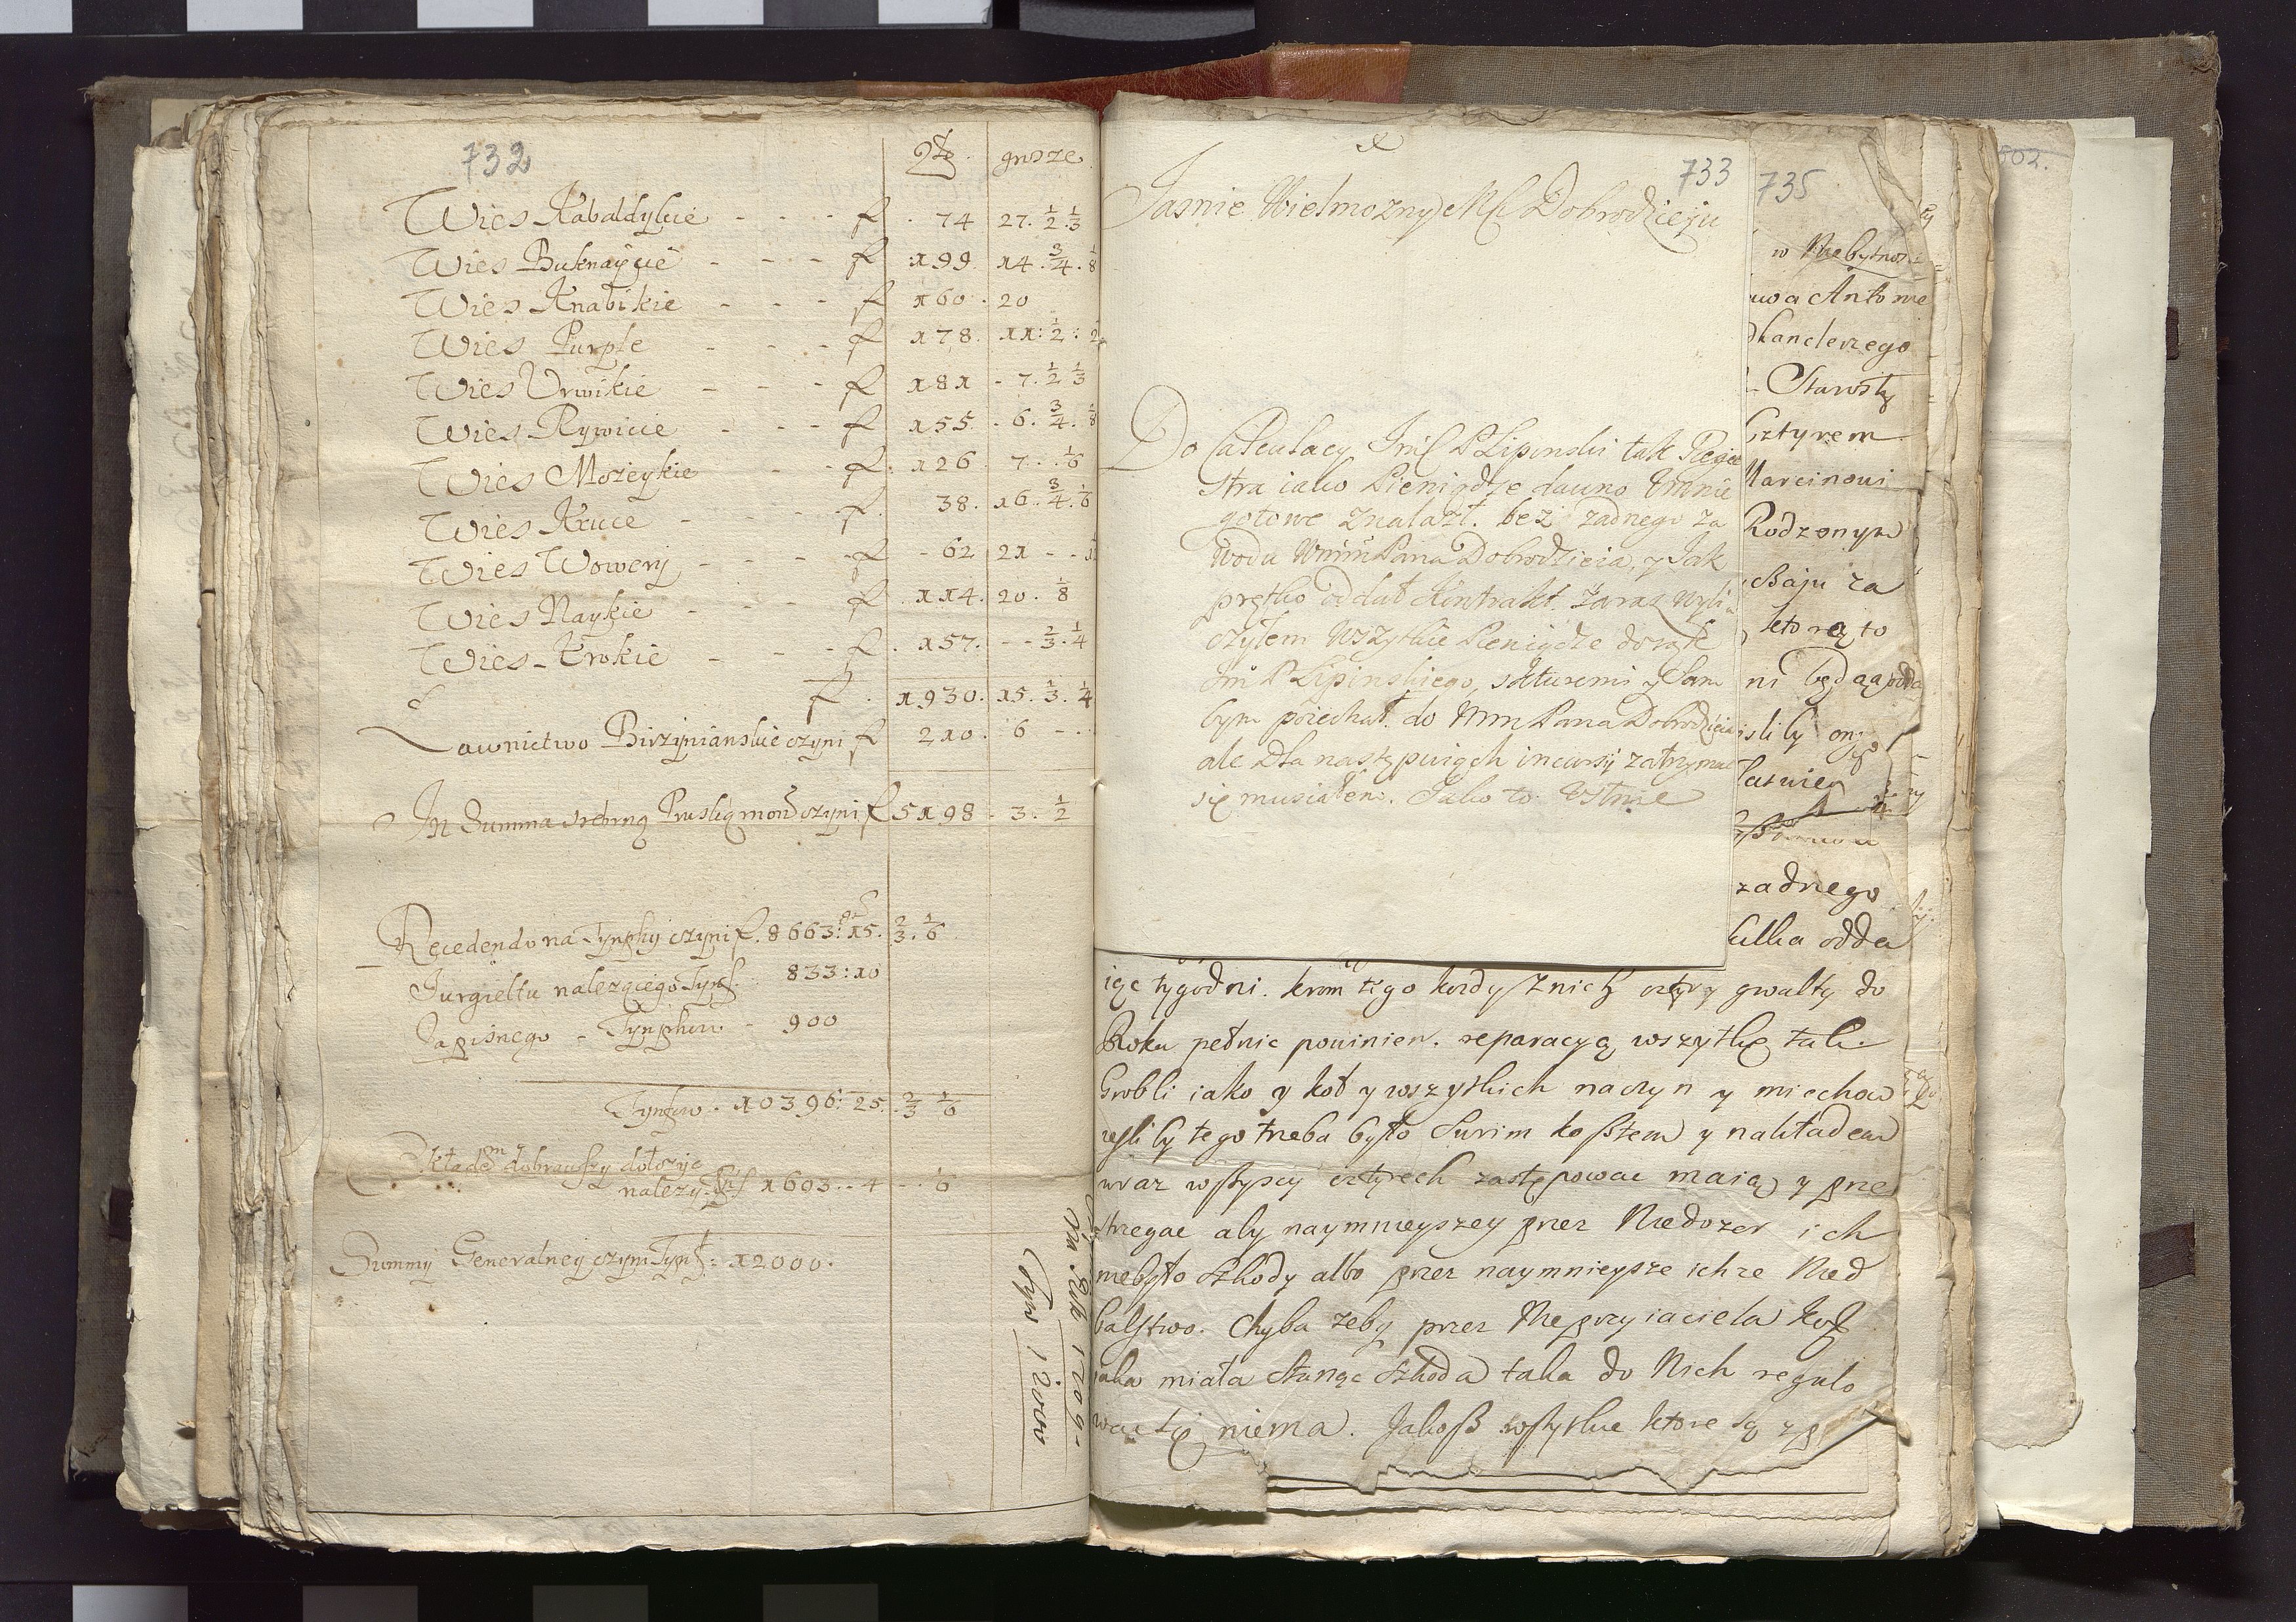 732
Złł. grosze
Wies Kabaldykie - - - f. 74 27. 1/2. 1/3
Wies Buknaycie - - - f 199 14. 3/4. 1/8
Wies Knabikie - - - f 160. 20
Wies Purple - - - f 178. 11: 1/2:
Wies Urwikie - - - f 181 - 7. 1/2 1/3
Wies Rywicie - - - f 155. - 6. 3/4. 1/8
Wies Możeykie - - f. 126 7 - - 1/6
Wies Kruce - - - f. 38. 16. 3/4. 1/6
Wies Wowery - - - f - 62 21 - -
Wies Naykie - - - f 114. 20. 1/8
Wies Trokie - - - f. 157. - - 2/3. 1/4
f. 1930. 15. 1/3. 1/4
Ławnictwo Birżynianskie czyni f 210. 6 - -
In Summa srebrną Pruską mon. czyni f 5198 - 3. 1/2
Recedendo na Tynphy czyni f. 8663: 15. 2/3. 1/6
Jurgieltu należącego Tynf. 833:10
Zapisnego - Tynphow - 900
Tynfow. 10396: 25. 2/3 1/6
dobrawszy dołożyc
należy 1603. - 4 - - 1/6
Summy Generalney czyni Tynf: 12000.
Na Rok 1709 -
Tynf 12000
733
Jasnie Wielmozny Mći Dobrodzieju
Do Calculacy Jmć P Lipinski tak Regie
stra iako Pieniądze dawno Umnie
gotowe Znalazł. bez żadnego za
wodu Wmm Pana Dobrodzieia, y Jak
prętko oddał Kontrakt. Zaraz Wyli
czyłem Wszytkie Pieniądze do rąk
Jmć P Lipinskiego, zkturemi y Sam
bym poiechał. do Wmm Pana Dobrodzieia
ale Dla następuiących incursy zatrzymac
się musiałem. Jako to Ustnie
735
w Niebytnos
uwa Antonie
dkanclerzego
Starosty
Cztyrem
Marcinowi
Rodzonym
Baju za
ktorą to
ni będą odda
isli by
żadnego
odda
ięc tygodni. krom tego kozdy Znich cztyry gwałty do
Roku pełnic powinien. reparacyą wszytkę tak
Grobli iako y koł y wszytkich naczyn y miechow
iesli by tego treba było Swoim kosztem y nakładem
wraz wszyscy cztyrech zastępowac maią y prze
strzegac aby naymnieyszey przez Niedozor ich
niebyło Szkody albo przez naymnieysze ich ze Nied
balstwo. Chyba zeby przez Nieprzyiaciela kosz
iaka miała Stanąc Szkoda taka do Nich regulo
wac się niema. Jakosz wszytkie ktore są
802.